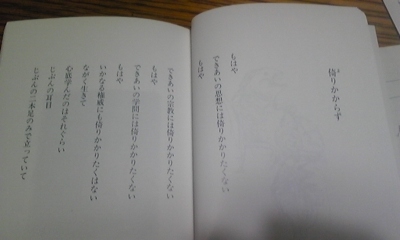 倚りかからず
もはや
できあいの思想には倚りかかりたくない
もはや
できあいの宗教には倚りかかりたくない
もはや
できあいの学問には倚りかかりたくない
もはや
いかなる権威にも倚りかかりたくはない
ながく生きて
心底学んだのはそれぐらい
じぶんの耳目
じぶんの二本足のみで立っていて